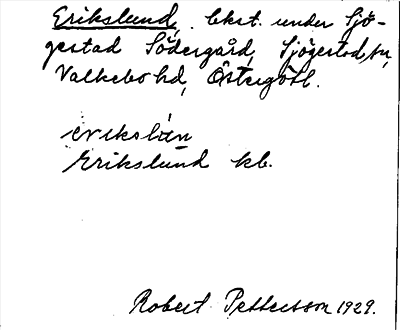 Erikslund, bkst. under Sjö-
gestad Södergård, Sjögestad sn,
Valkebo hd, Östergötl.
erikslún
Erikslund kb.
Robert Pettersson 1929.